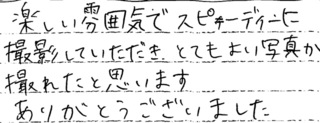 楽しい雰囲気でスピーディーに
撮影していただきとてもよい写真が
撮れたと思います
ありがとうございました